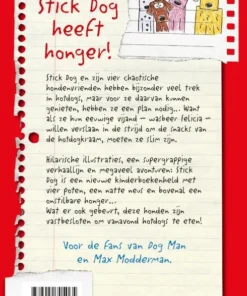 Stick Dog
heeft
honger!
Stick Dog en zijn vier chaotische
hondenvrienden hebben bijzonder veel trek
in hotdogs, maar voor ze daarvan kunnen
genieten, hebben ze een plan nodig... Want
als ze hun eeuwige vijand – wasbeer Felicia –
willen verslaan in de strijd om de snacks van
de hotdogkraam, moeten ze slim zijn.
Hilarische illustraties, een supergrappige
verhaallijn en megaveel avonturen: Stick
Dog is een nieuwe kinderboekenheld met
vier poten, een natte neus en bovenal een
onstilbare honger...
Wat er ook gebeurt, deze honden zijn
vastbesloten om vanavond hotdogs te eten!
Voor de fans van Dog Man
en Max Modderman.